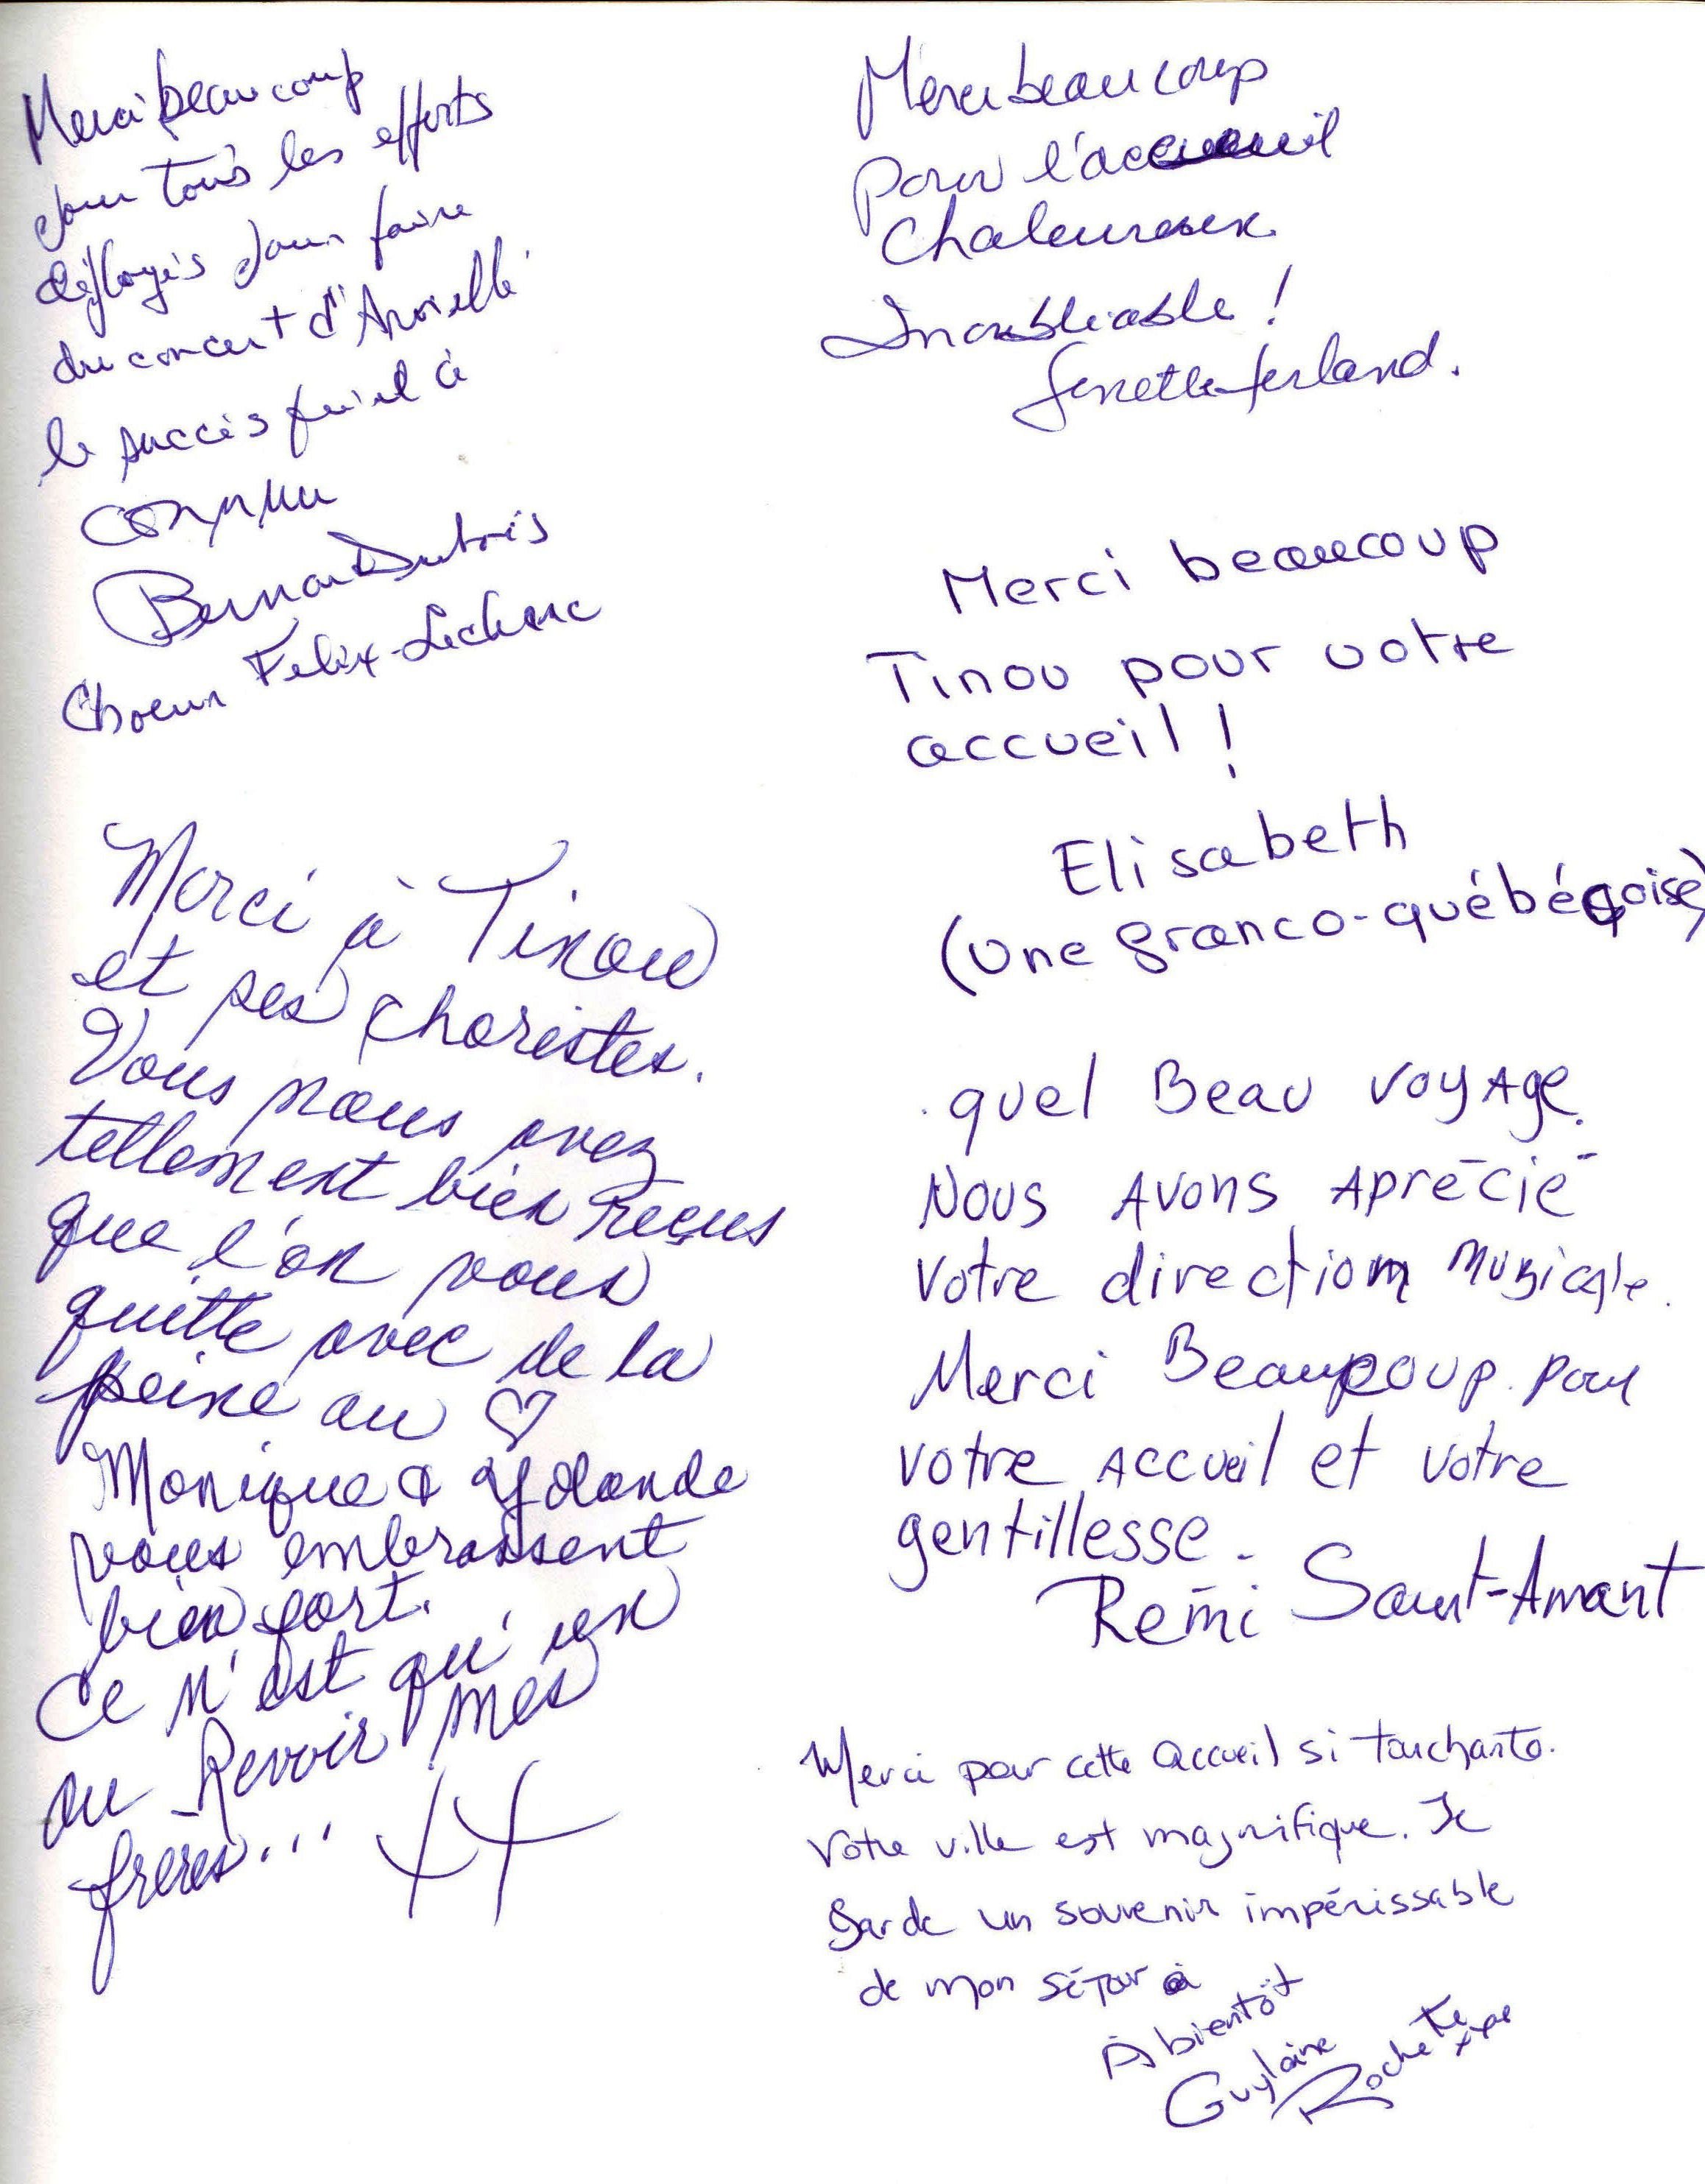 Merci beaucoup
pour tous les efforts
déployés pour faire
du concert d'
le succès qu'il a
connu
Bernard Dubois
Choeur Felix-Leclerc
Merci à Tinou
et ses choristes.
Vous nous avez
tellement bien reçus
que l'on vous
quitte avec de la
peine au ♡
Monique & Yolande
vous embrassent
bien fort.
Ce n'est qu'un
au Revoir mes
frères...
Merci beaucoup
pour l'accueuil
Chaleureux
Inoubliable !
Ginette Ferland.
Merci beaucoup
Tinou pour votre
accueil !
Elisabeth
(une franco-québéqoise)
quel Beau voyAge.
Nous Avons Aprécié
votre direction musicale.
Merci Beaucoup pour
votre Accueil et votre
gentillesse.
Rémi Saint-Amant
Merci pour cette accueil si touchante.
Votre ville est magnifique. Je
garde un souvenir impérissable
de mon séjour
À bientôt
Guylaine Rochette